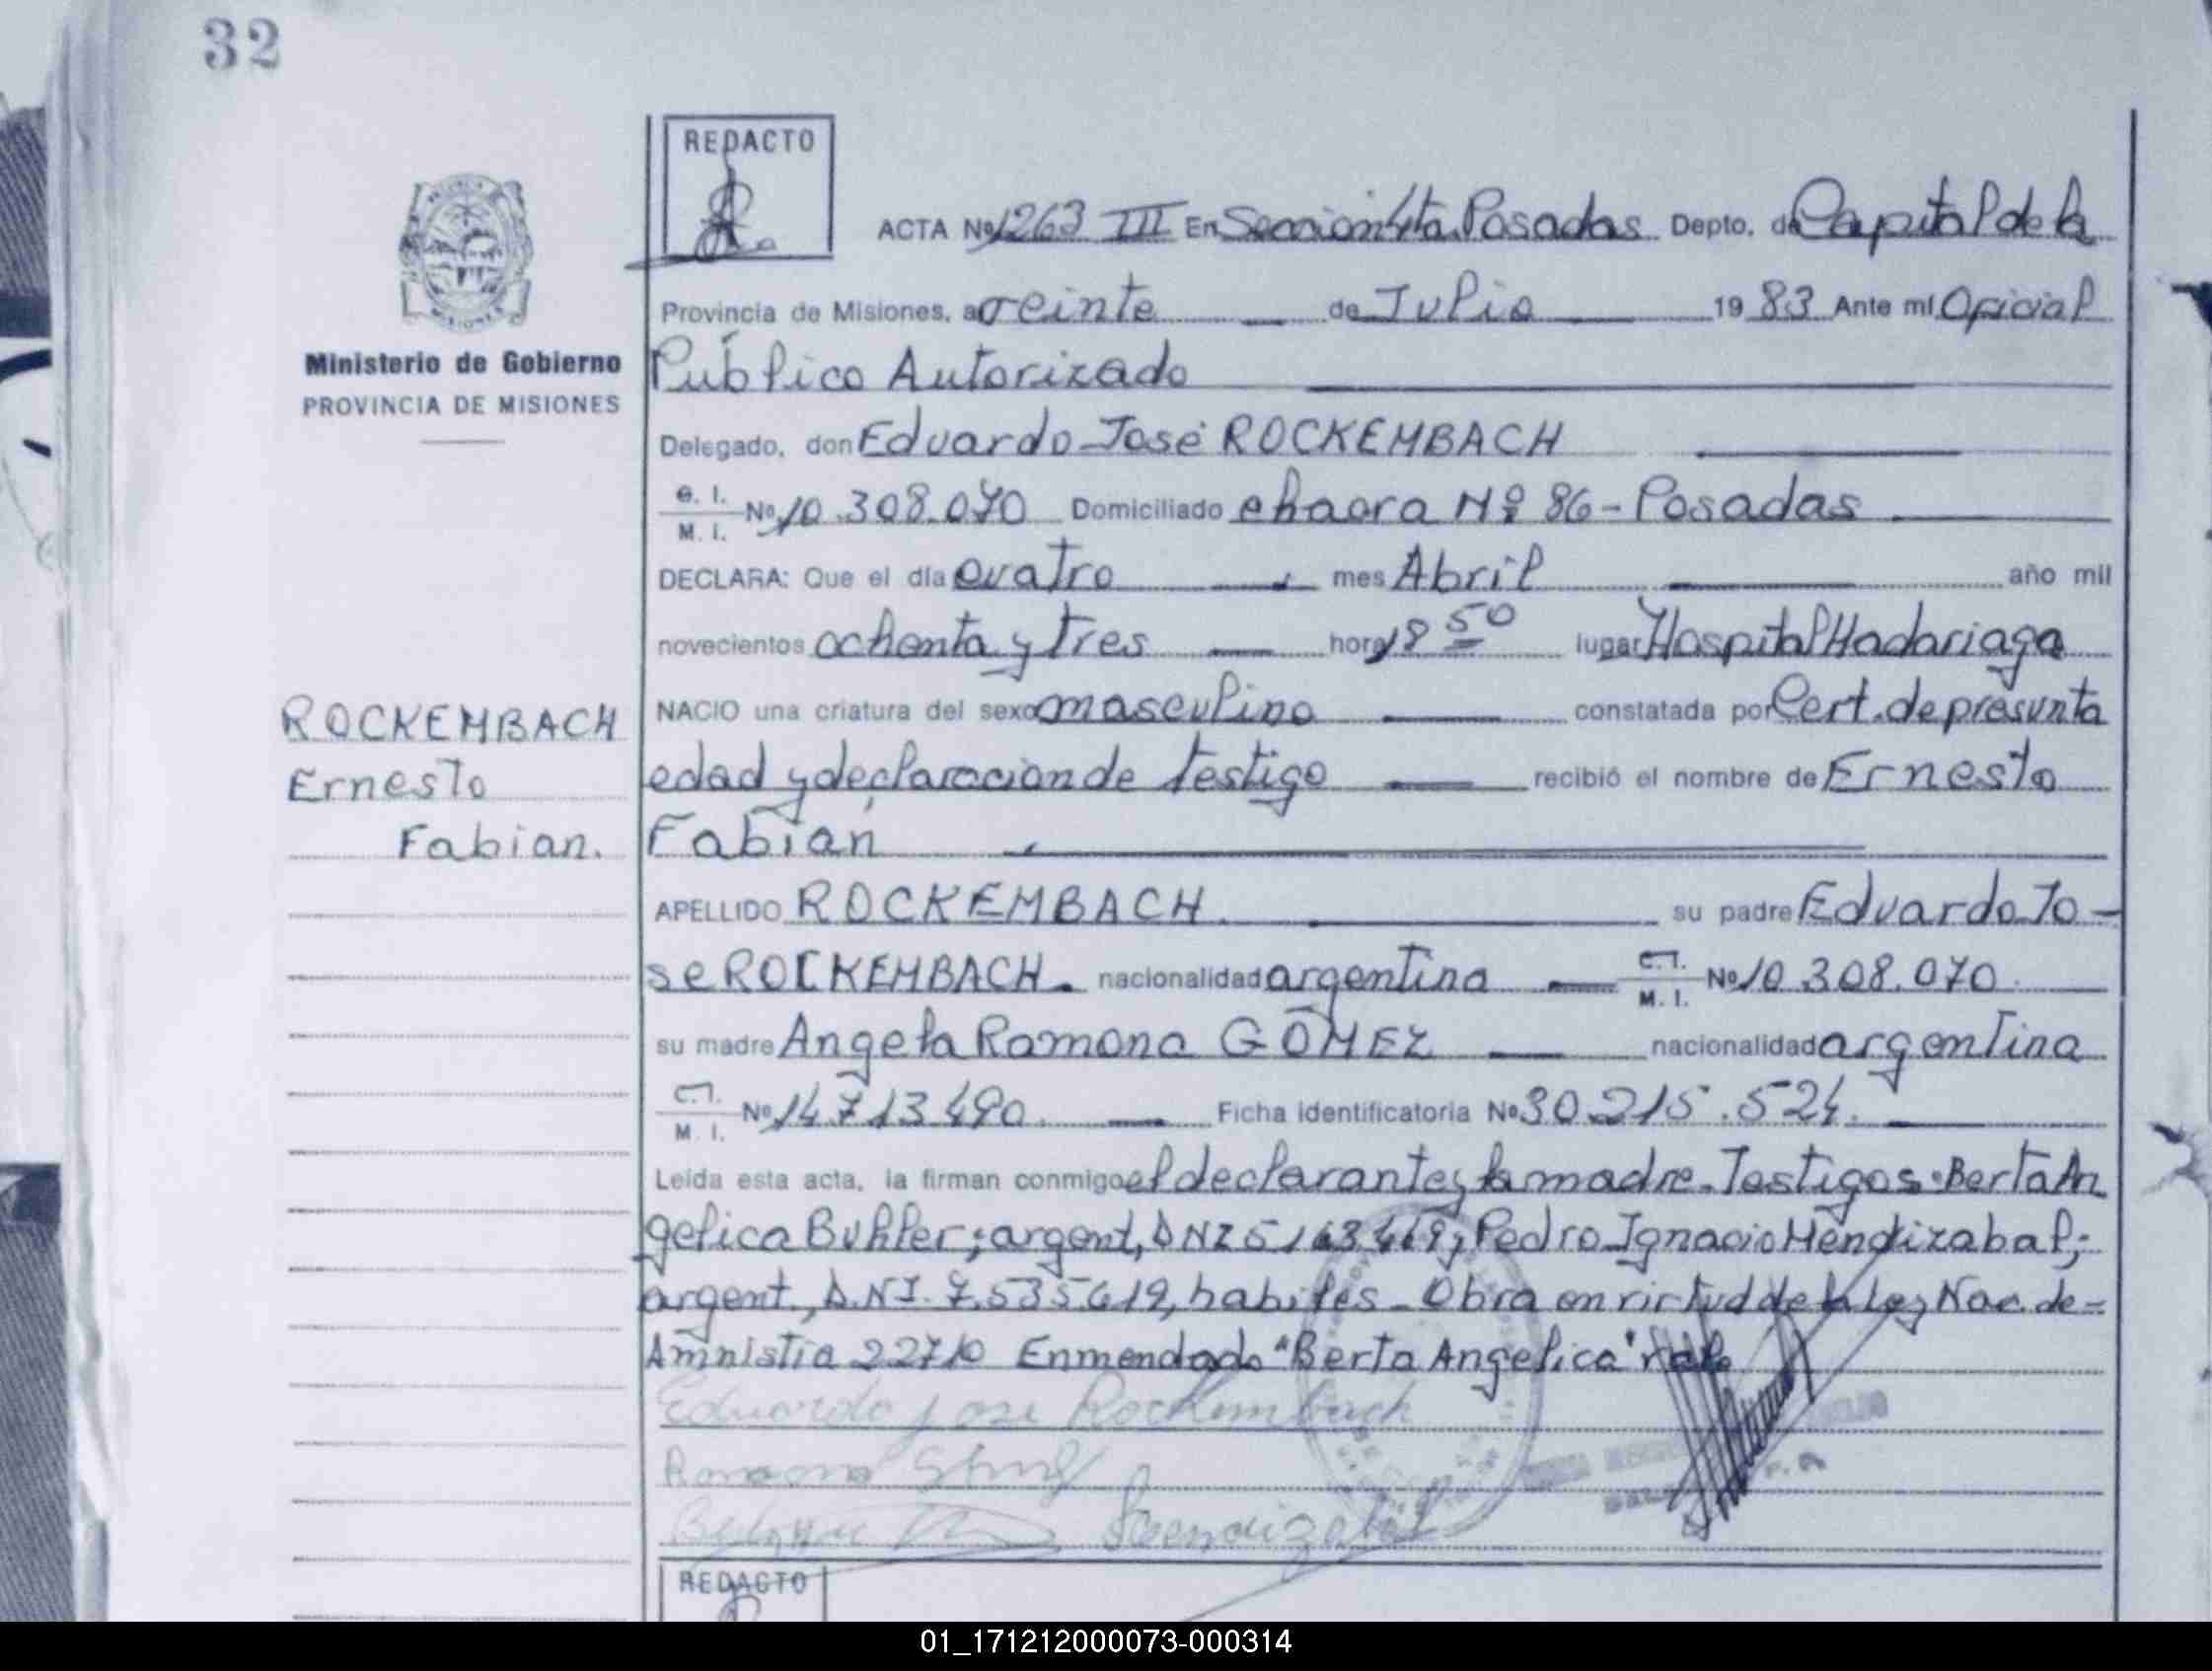 32
REDACTO
ACTA Nº 1263 III En Sección 4ta. Posadas Depto. de Capital de la
Provincia de Misiones, a veinte de Julio 1983 Ante mí Oficial
Ministerio de Gobierno
PROVINCIA DE MISIONES
Público Autorizado
Delegado, don Eduardo José ROCKEMBACH
C. I. M. I. Nº 10.308.070 Domiciliado chacra Nº 86 - Posadas
DECLARA: Que el día cuatro mes Abril año mil
novecientos ochenta y tres hora 18 50 lugar Hospital Madariaga
NACIO una criatura del sexo masculino constatada por Cert. de presunta
ROCKEMBACH
Ernesto
Fabian.
edad y declaracion de testigo recibió el nombre de Ernesto
Fabián
APELLIDO ROCKEMBACH. su padre Eduardo Jo-
se ROCKEMBACH. nacionalidad argentina C.I. M. I. Nº 10.308.070.
su madre Angela Ramona GÓMEZ nacionalidad argentina
C.I. M. I. Nº 14.713.490. Ficha identificatoria Nº 30.215.524.
Leída esta acta, la firman conmigo el declarante y la madre. Testigos: Berta An
gelica Buhler; argent, DNI 5163 y Pedro Ignacio Mendizabal;
argent., D.N.I. 7.535.619, habiles - Obra en virtud de la Ley Nac. de
Amnistia 22710 Enmendado "Berta Angelica" Vale
Eduardo Jose Rockembach
Ramona
Mendizabal
REDACTO
01_171212000073-000314